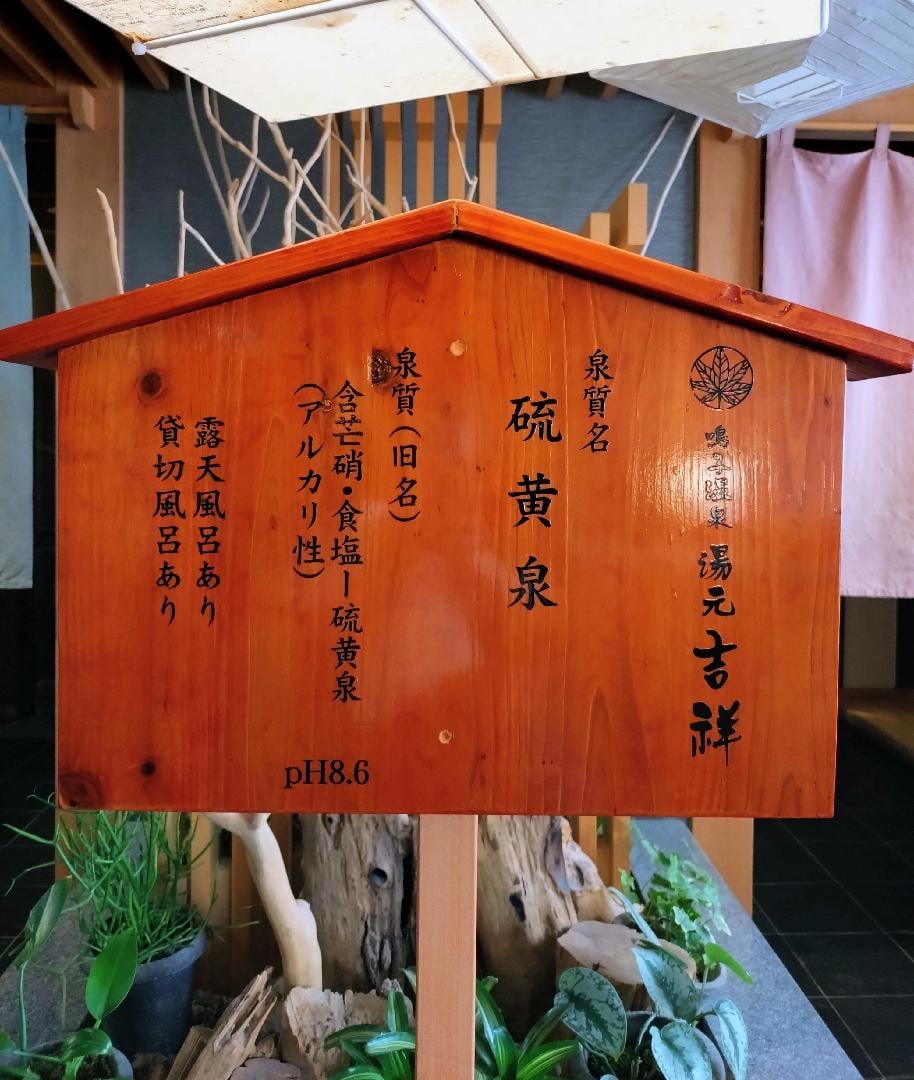 鳴子温泉 湯元 吉祥
泉質名
硫黄泉
泉質(旧名)
含芒硝・食塩ー硫黄泉
(アルカリ性)
pH8.6
露天風呂あり
貸切風呂あり